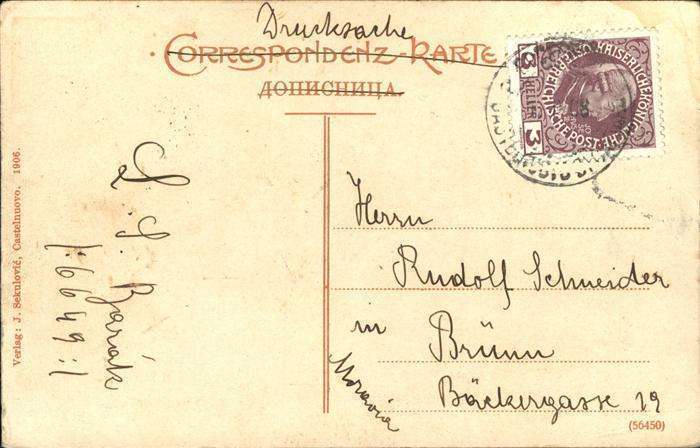 Drucksache
CORRESPONDENZ-KARTE
ДОПИСНИЦА.
3 HELLER 3
KAISERLICHE KÖNIGLICHE
ÖSTERREICHISCHE POST
Verlag: J. Sekulović, Castelnuovo. 1906.
Herrn
Rudolf Schneider
in
Brünn
Bäckergasse 19
Moravia
(56450)